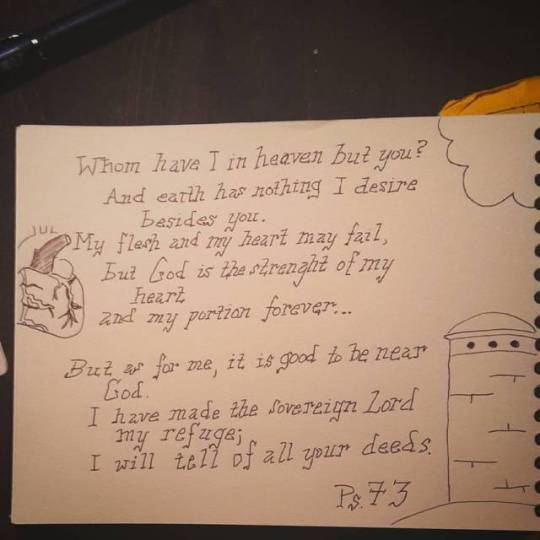 Whom have I in heaven but you?
And earth has nothing I desire
besides you.
JUL
My flesh and my heart may fail,
but God is the strenght of my
heart
and my portion forever...
But as for me, it is good to be near
God.
I have made the sovereign Lord
my refuge;
I will tell of all your deeds.
Ps. 73